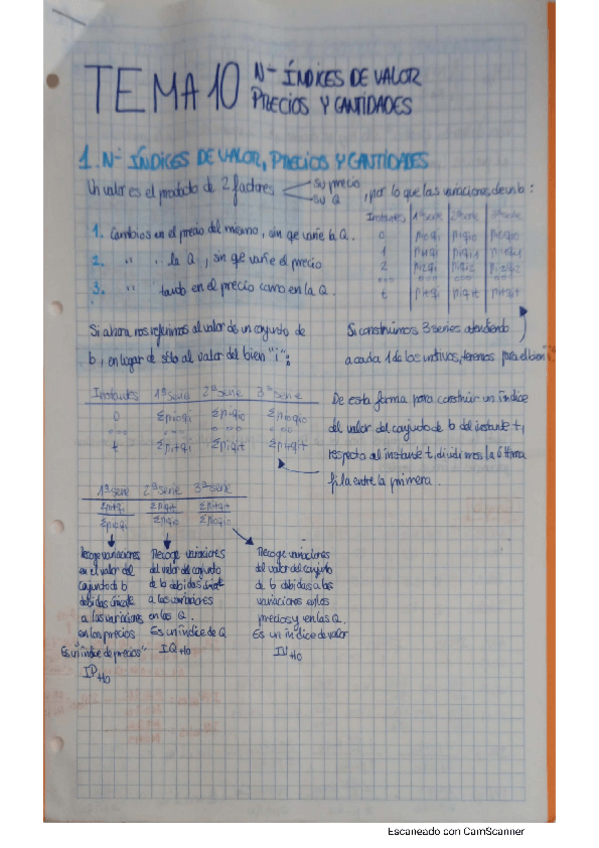 TEMA 10 Nº ÍNDICES DE VALOR
PRECIOS Y CANTIDADES
1. Nº ÍNDICES DE VALOR, PRECIOS Y CANTIDADES
Un valor es el producto de 2 factores su precio
su Q
, por lo que las variaciones de un b :
1. Cambios en el precio del mismo, sin qe varíe la Q.
2. " " la Q, sin qe varíe el precio
3. " tanto en el precio como en la Q.
Instantes 1ª serie 2ª serie 3ª serie
0 pi0qi piqi0 pi0qi0
1 pi1qi piqi1 pi1qi1
2 pi2qi piqi2 pi2qi2
t pitqi piqit pitqit
Si ahora nos referimos al valor de un conjunto de
b, en lugar de sólo al valor del bien "i":
Si construimos 3 series atendiendo
a cada 1 de los motivos, tenemos para el bien "i"
Instantes 1ª serie 2ª serie 3ª serie
0 Σpi0qi Σpiqi0 Σpi0qi0
t Σpitqi Σpiqit Σpitqit
De esta forma para construir un índice
del valor del conjunto de b del instante t,
respecto al instante t, dividimos la última
fila entre la primera.
1ª serie 2ª serie 3ª serie
Σpitqi Σpiqit Σpitqit
Σpi0qi Σpiqi0 Σpi0qi0
Recoge variaciones
en el valor del
conjunto de b
debidas únicate
a las variaciones
en los precios
Es un "índice de precios"
IPt/0
Recoge variaciones
del valor del conjunto
de b debidas únicate
a las variaciones
en las Q.
Es un índice de Q
IQt/0
Recoge variaciones
del valor del conjunto
de b debidas a las
variaciones en los
precios y en las Q.
Es un índice de valor
IVt/0
Escaneado con CamScanner